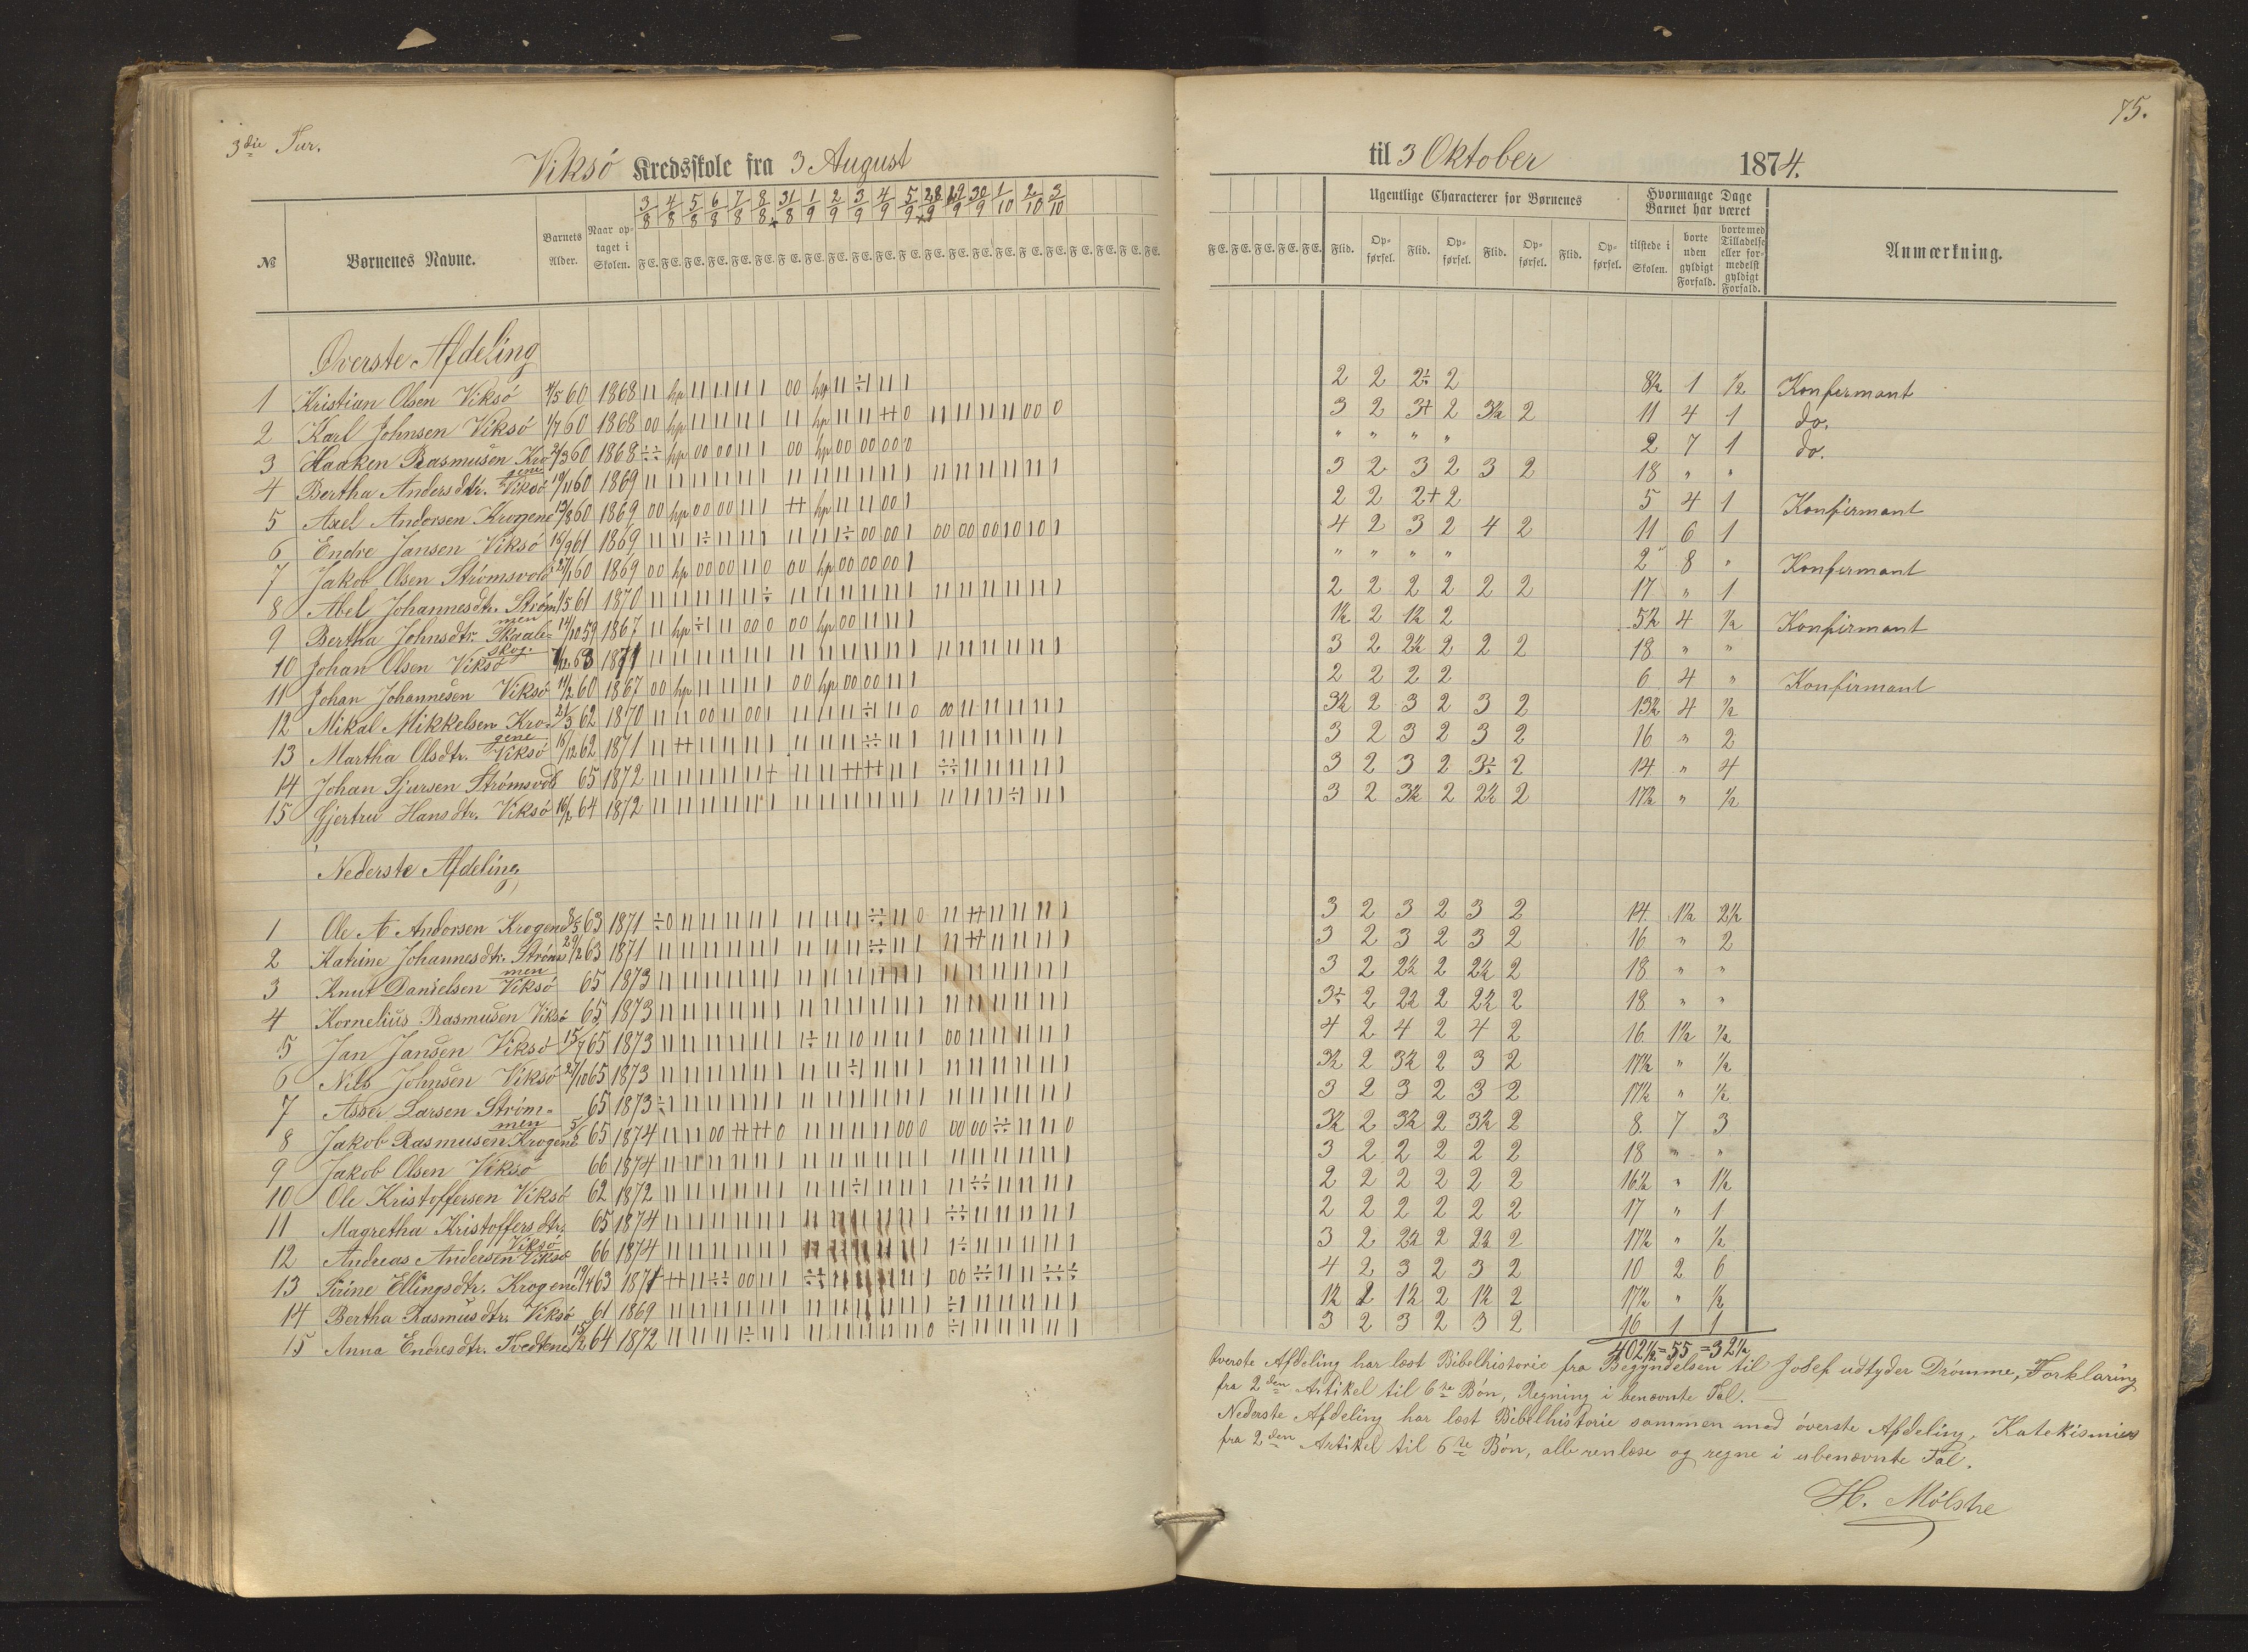 3die Tur.
75.
Viksö Kredsskole fra 3 August til 3 Oktober 1874.
№ Børnenes Navne. Barnets Alder. Naar optaget i Skolen. 3/8 4/8 5/8 6/8 7/8 8/8 31/8 1/9 2/9 3/9 4/9 5/9 28/9 29/9 30/9 1/10 2/10 3/10
F.E. F.E. F.E. F.E. F.E. F.E. F.E. F.E. F.E. F.E. F.E. F.E. F.E. F.E. F.E. F.E. F.E. F.E. F.E. F.E. F.E. F.E.
F.E. F.E. F.E. F.E. F.E.
Ugentlige Characterer for Børnenes
Flid. Opførsel. Flid. Opførsel. Flid. Opførsel. Flid. Opførsel.
Hvormange Dage Barnet har været
tilstede i Skolen. borte uden gyldigt Forfald. borte med Tilladelse eller formedelst gyldigt Forfald.
Anmærkning.
Øverste Afdeling
1 Kristian Olsen Viksö 4/5 60 1868 2 2 2÷ 2 8½ 1 ½ Konfirmant
2 Karl Johnsen Viksö 1/7 60 1868 3 2 3+ 2 3½ 2 11 4 1 do.
3 Haaken Rasmusen Krogene 2/3 60 1868 " " " " 2 7 1 do.
4 Bertha Andersdtr. Viksö 19/11 60 1869 3 2 3 2 3 2 18 " "
5 Axel Andorsen Krogene 13/8 60 1869 2 2 2+ 2 5 4 1 Konfirmant
6 Endre Jansen Viksö 18/9 61 1869 4 2 3 2 4 2 11 6 1
7 Jakob Olsen Strömsvold 27/1 60 1869 " " " " 2 8 " Konfirmant
8 Abel Johannesdtr. Strömmen 1/5 61 1870 2 2 2 2 2 2 17 " 1
9 Bertha Johnsdtr. Skaaleskog. 14/10 59 1867 1½ 2 1½ 2 5½ 4 ½ Konfirmant
10 Johan Olsen Viksö 7/12 63 1871 3 2 2½ 2 2 2 18 " "
11 Johan Johannesen Viksö 11/2 60 1867 2 2 2 2 6 4 " Konfirmant
12 Mikal Mikkelsen Krogene 21/3 62 1870 3½ 2 3 2 3 2 13½ 4 ½
13 Martha Olsdtr. Viksö 18/12 62 1871 3 2 3 2 3 2 16 " 2
14 Johan Sjursen Strömsvold 65 1872 3 2 3 2 3÷ 2 14 " 4
15 Gjertru Hansdtr. Viksö 16/2 64 1872 3 2 3½ 2 2½ 2 17½ " ½
Nederste Afdeling
1 Ole A Andorsen Krogene 8/5 63 1871 3 2 3 2 3 2 14 1½ 2½
2 Katrine Johannesdtr. Strömmen 29/12 63 1871 3 2 3 2 3 2 16 " 2
3 Knut Danielsen Viksö 65 1873 3 2 2½ 2 2½ 2 18 " "
4 Kornelius Rasmusen Viksö 65 1873 3÷ 2 2½ 2 2½ 2 18 " "
5 Jan Jansen Viksö 15/7 65 1873 4 2 4 2 4 2 16 1½ ½
6 Nils Johnsen Viksö 27/10 65 1873 3½ 2 3½ 2 3 2 17½ " ½
7 Asser Larsen Strömmen 65 1873 3 2 3 2 3 2 17½ " ½
8 Jakob Rasmusen Krogene 5/6 65 1874 3½ 2 3½ 2 3½ 2 8 7 3
9 Jakob Olsen Viksö 66 1874 3 2 2 2 2 2 18 " "
10 Ole Kristoffersen Viksö 62 1872 2 2 2 2 2 2 16½ " 1½
11 Magretha Kristoffersdtr. Viksö 65 1874 2 2 2 2 2 2 17 " 1
12 Andreas Andersen Viksö 66 1874 3 2 2½ 2 2½ 2 17½ " ½
13 Sirine Ellingsdtr. Krogene 19/4 63 1871 4 2 3 2 3 2 10 2 6
14 Bertha Rasmusdtr. Viksö 61 1869 1½ 2 1½ 2 1½ 2 17½ " ½
15 Anna Endresdtr. Tvedtene 15/2 64 1872 3 2 3 2 3 2 16 1 1
402½ = 55 = 32½
Øverste Afdeling har læst Bibelhistorie fra Begyndelsen til Josef udtyder Drömme, Forklaring
fra 2den Artikel til 6te Bön, Regning i benævnte Tal.
Nederste Afdeling har læst Bibelhistorie sammen med överste Afdeling, Katekismus
fra 2den Artikel til 6te Bön, alle renlæse og regne i ubenævnte Tal.
H. Mölstre